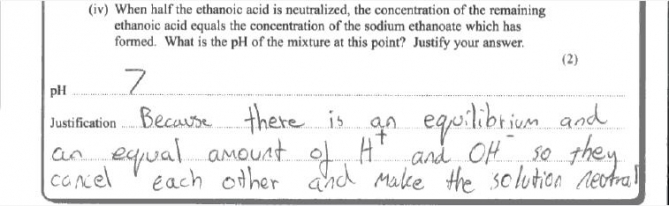 (iv) When half the ethanoic acid is neutralized, the concentration of the remaining
ethanoic acid equals the concentration of the sodium ethanoate which has
formed. What is the pH of the mixture at this point? Justify your answer.
(2)
pH 7
Justification Because there is an equilibrium and
an equal amount of H⁺ and OH⁻ so they
cancel each other and make the solution neutral